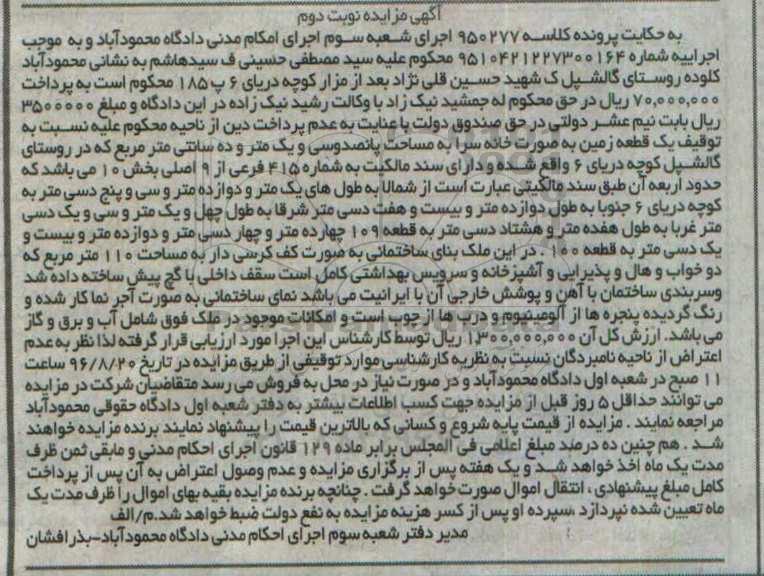 آگهی مزایده نوبت دوم
به حکایت پرونده کلاسه ۹۵۰۲۷۷ اجرای شعبه سوم اجرای امکام مدنی دادگاه محمودآباد و به موجب
اجراییه شماره ۹۵۱۰۴۲۱۲۲۷۳۰۰۱۶۴ محکوم علیه سید مصطفی حسینی ف سیدهاشم به نشانی محمودآباد
کلوده روستای گالشپل ک شهید حسین قلی نژاد بعد از مزار کوچه دریای ۶ پ ۱۸۵ محکوم است به پرداخت
۷۰,۰۰۰,۰۰۰ ریال در حق محکوم له جمشید نیک زاد با وکالت رشید نیک زاده در این دادگاه و مبلغ ۳۵۰۰۰۰۰
ریال بابت نیم عشر دولتی در حق صندوق دولت با عنایت به عدم پرداخت دین از ناحیه محکوم علیه نسبت به
توقیف یک قطعه زمین به صورت خانه سرا به مساحت پانصدوسی و یک متر و ده سانتی متر مربع که در روستای
گالشپل کوچه دریای ۶ واقع شده و دارای سند مالکیت به شماره ۴۱۵ فرعی از ۹ اصلی بخش ۱۰ می باشد که
حدود اربعه آن طبق سند مالکیتی عبارت است از شمالا به طول های یک متر و دوازده متر و سی و پنج دسی متر به
کوچه دریای ۶ جنوبا به طول دوازده متر و بیست و هفت دسی متر شرقا به طول چهل و یک متر و سی و یک دسی
متر غربا به طول هفده متر و هشتاد دسی متر به قطعه ۱۰۹ چهارده متر و چهار دسی متر و دوازده متر و بیست و
یک دسی متر به قطعه ۱۰۰ . در این ملک بنای ساختمانی به صورت کف کرسی دار به مساحت ۱۱۰ متر مربع که
دو خواب و هال و پذیرایی و آشپزخانه و سرویس بهداشتی کامل است سقف داخلی با گچ پیش ساخته داده شد
وسربندی ساختمان با آهن و پوشش خارجی آن با ایرانیت می باشد نمای ساختمانی به صورت آجر نما کار شده و
رنگ گردیده پنجره ها از آلومینیوم و درب ها از چوب است و امکانات موجود در ملک فوق شامل آب و برق و گاز
می باشد. ارزش کل آن ۱,۳۰۰,۰۰۰,۰۰۰ ریال توسط کارشناس این اجرا مورد ارزیابی قرار گرفته لذا نظر به عدم
اعتراض از ناحیه نامبردگان نسبت به نظریه کارشناسی موارد توقیفی از طریق مزایده در تاریخ ۹۶/۸/۲۰ ساعت
۱۱ صبح در شعبه اول دادگاه محمودآباد و در صورت نیاز در محل به فروش می رسد متقاضیان شرکت در مزایده
می توانند حداقل ۵ روز قبل از مزایده جهت کسب اطلاعات بیشتر به دفتر شعبه اول دادگاه حقوقی محمودآباد
مراجعه نمایند . مزایده از قیمت پایه شروع و کسانی که بالاترین قیمت را پیشنهاد نمایند برنده مزایده خواهند
شد . هم چنین ده درصد مبلغ اعلامی فی المجلس برابر ماده ۱۲۹ قانون اجرای احکام مدنی و مابقی ثمن ظرف
مدت یک ماه اخذ خواهد شد و یک هفته پس از برگزاری مزایده و عدم وصول اعتراض به آن پس از پرداخت
کامل مبلغ پیشنهادی ، انتقال اموال صورت خواهد گرفت . چنانچه برنده مزایده بقیه بهای اموال را ظرف مدت یک
ماه تعیین شده نپردازد ،سپرده او پس از کسر هزینه مزایده به نفع دولت ضبط خواهد شد.م/الف
مدیر دفتر شعبه سوم اجرای احکام مدنی دادگاه محمودآباد-بذرافشان